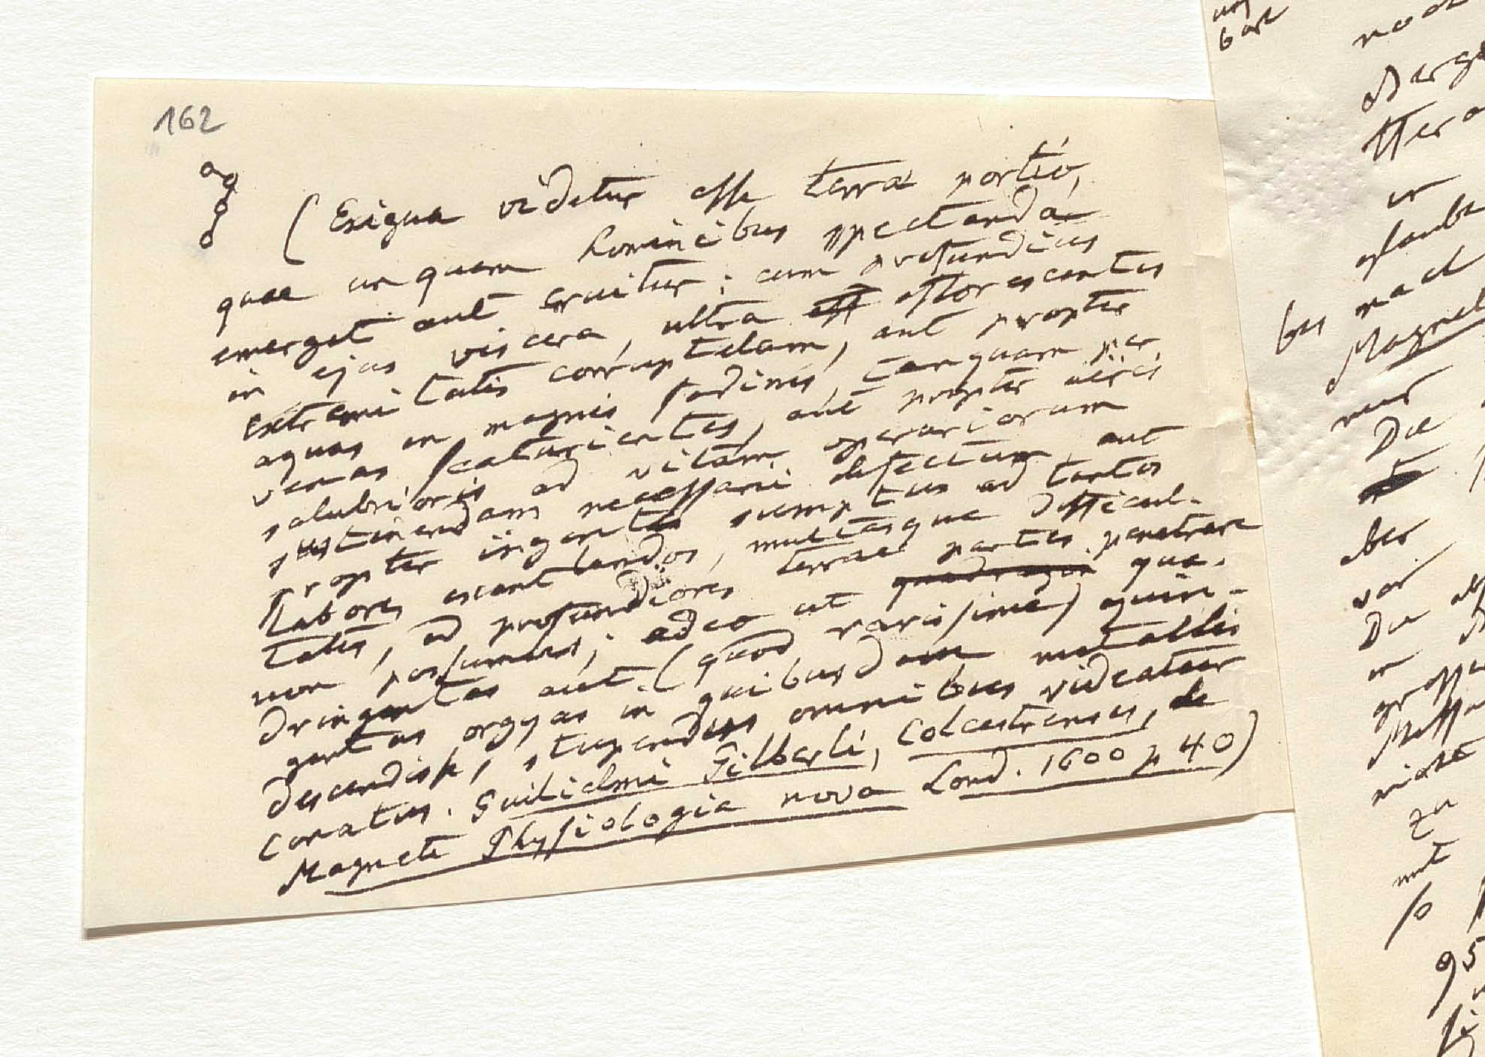 162
(Exigua videtur esse terrae portio,
quae unquam hominibus spectanda
emerget aut eruitur: cum profundius
in ejus viscera, ultra eff efflorescentes
extremitatis corruptelam, aut propter
aquas in magnis fodinis, tanquam per
venas scaturientes, aut propter aëris
salubrioris ad vitam operariorum
sustinendam necessarii defectum, aut
propter ingentes sumptus ad tantos
labores exantlandos, multasque difficul-
tates, ad profundiores terrae partes penetrare
non possumus; adeo ut quadragin qua-
dringentas aut (quod rarissime) quin-
gentas orgyas in quibusdam metallis
descendisse, stupendus omnibus videatur
conatus. Guilielmi Gilberti, Colcestrensis, de
Magnete Physiologia nova Lond. 1600 p 40)
noch
in
glaube
bes
nach
Magnet
nur
Die
aber
vor
Die
in
zu
mit
so
95